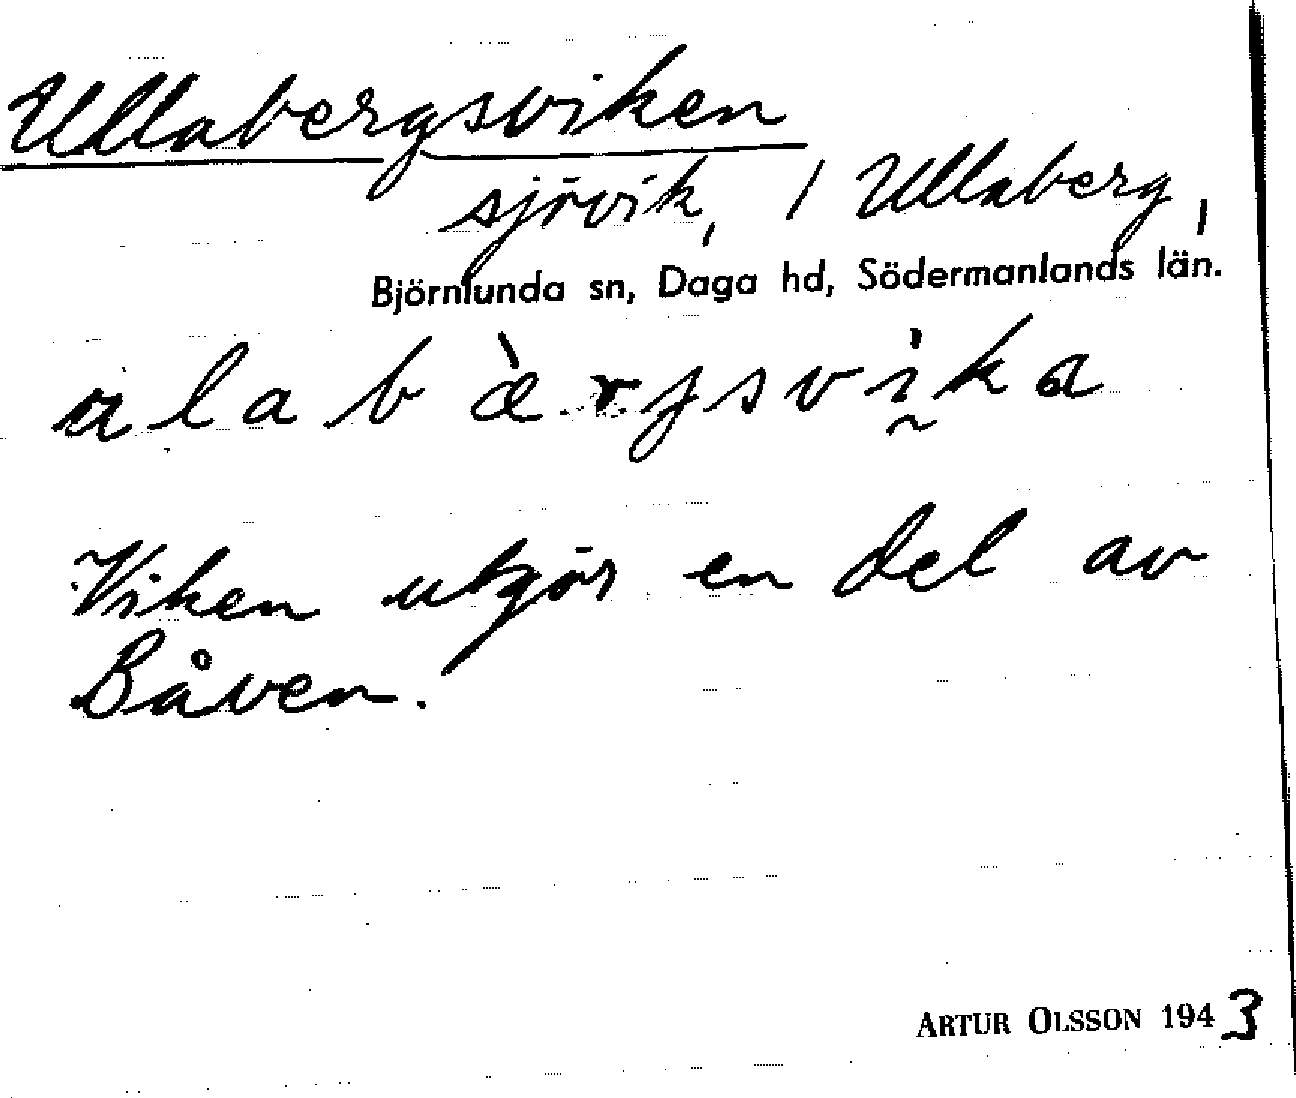 Ullabergsviken
sjövik, / Ullaberg,
Björnlunda sn, Daga hd, Södermanlands län.
Viken utgör en del av
Båven.
ARTUR OLSSON 1943